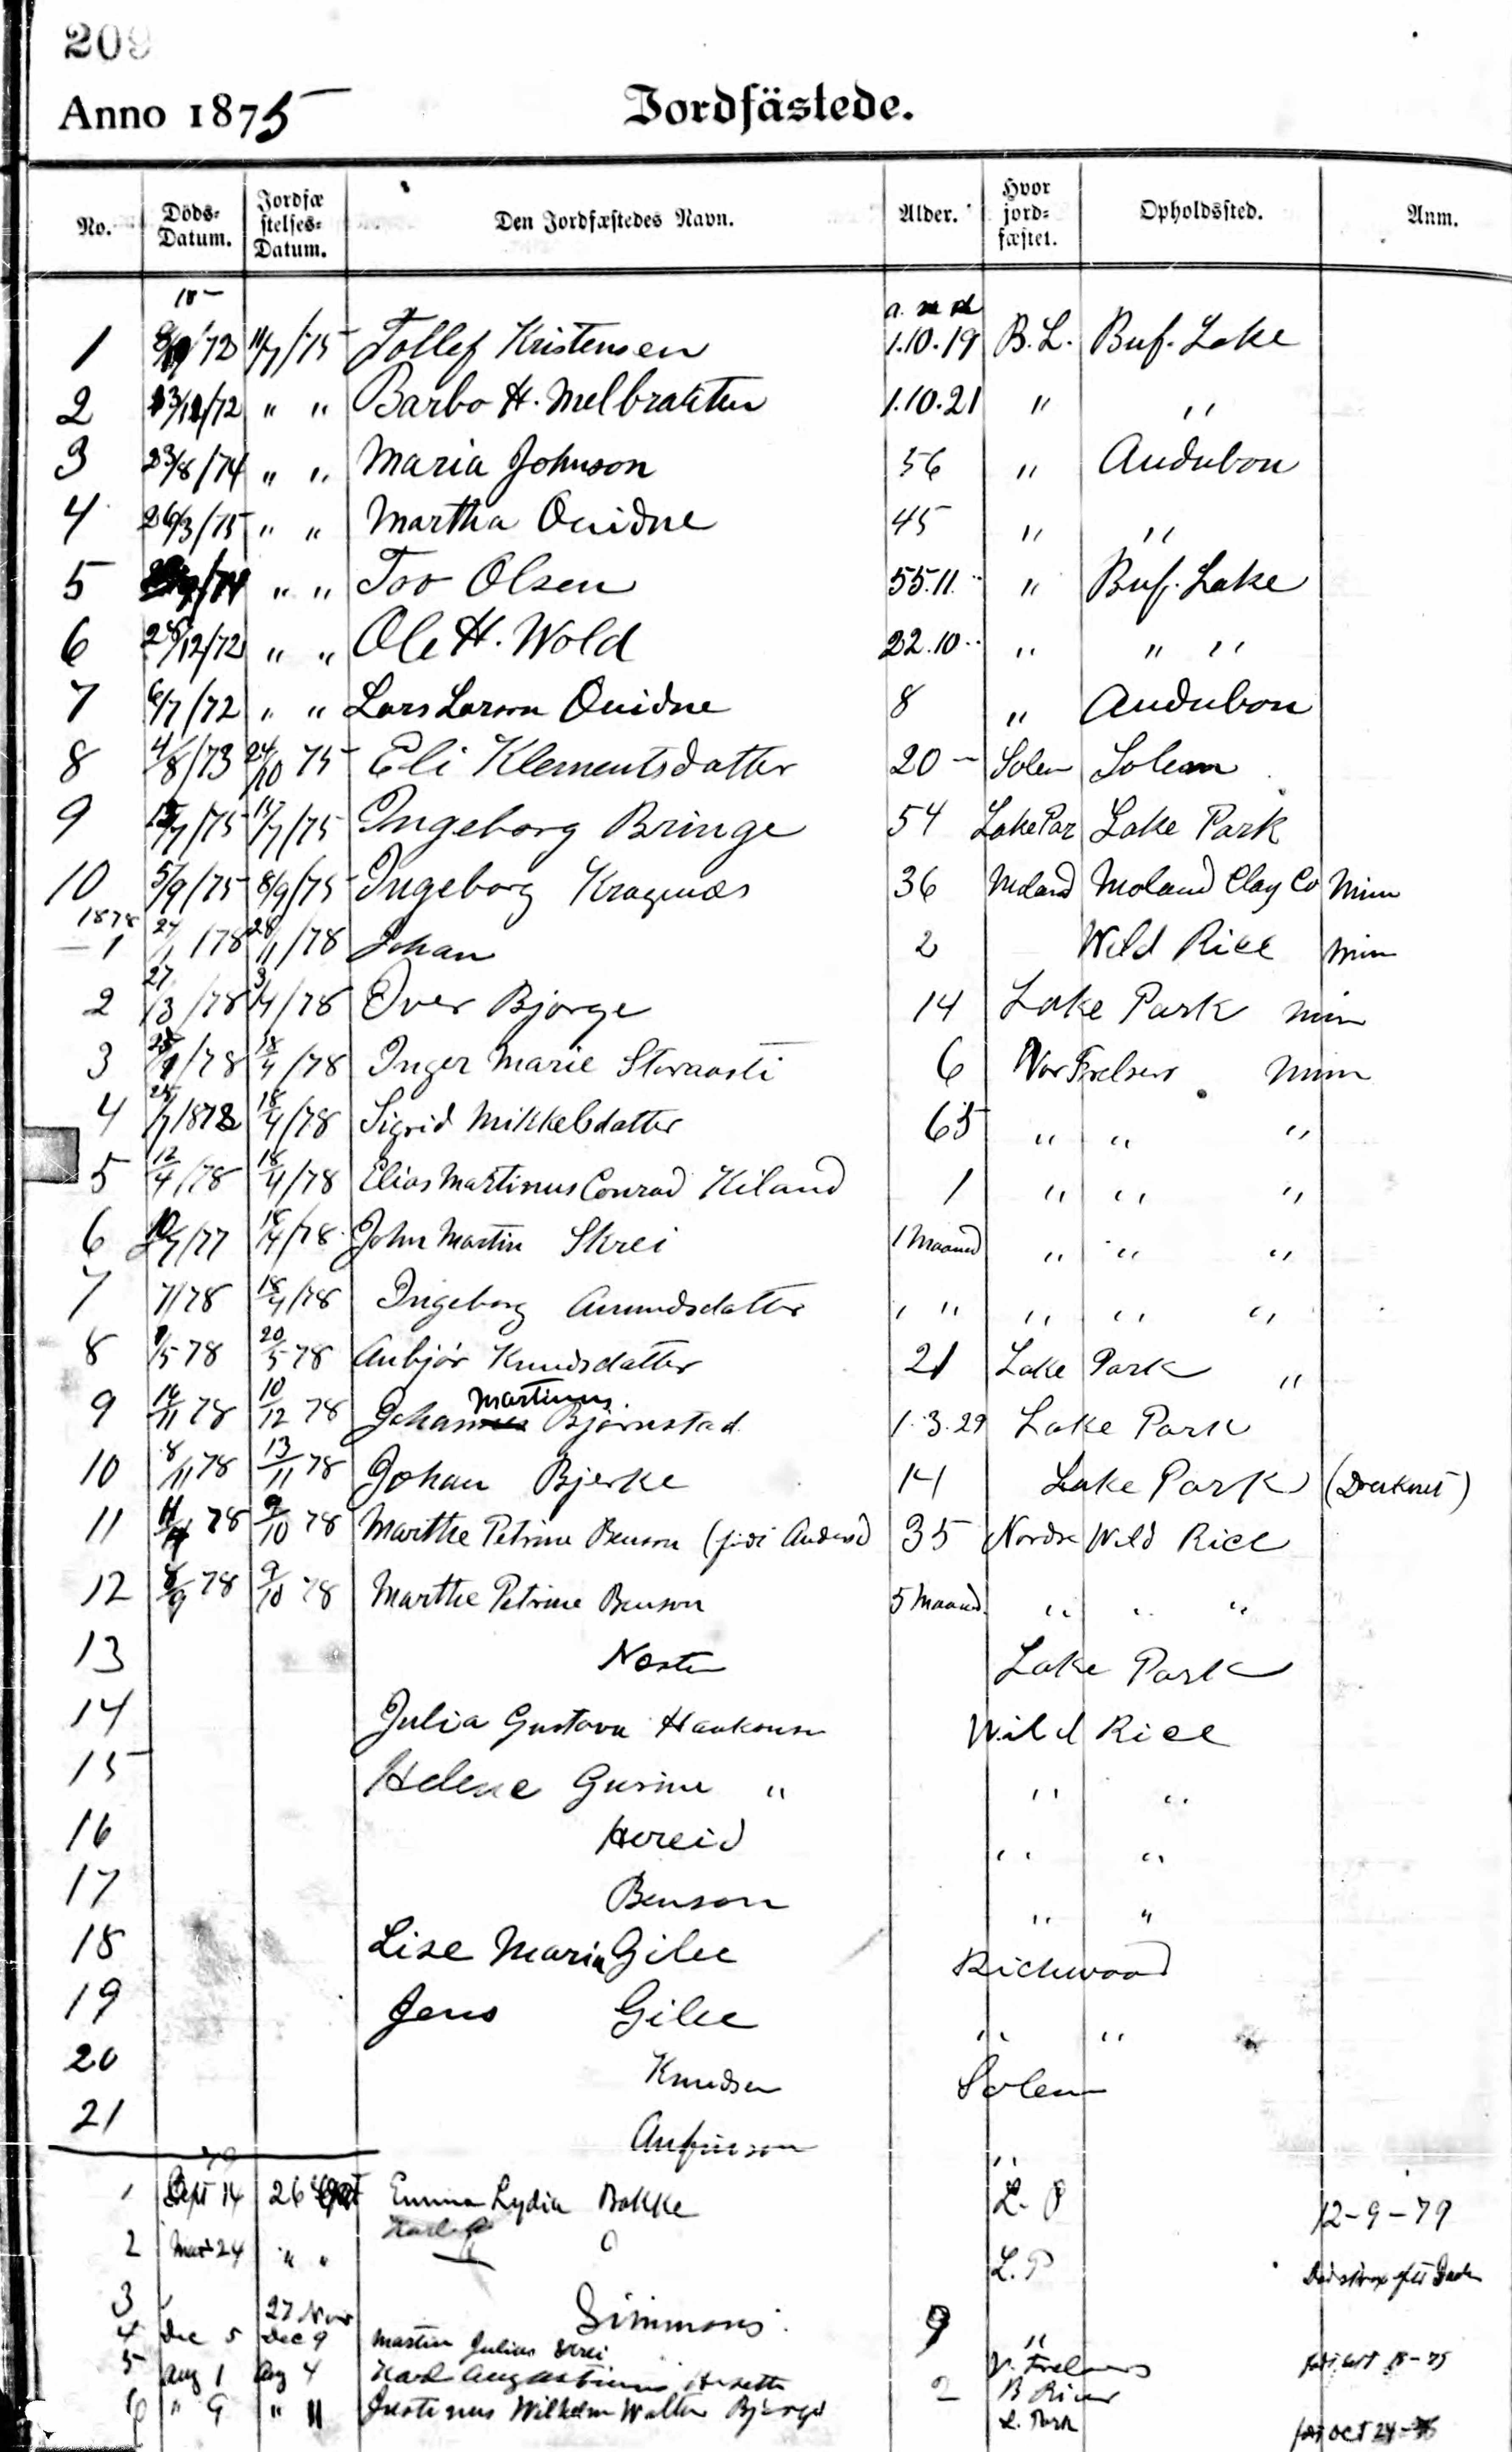 209
Anno 1875 Jordfästede.
No. Döds-Datum. Jordfæstelses-Datum. Den Jordfæstedes Navn. Alder. Hvor jord-fæstet. Opholdssted. Anm.
18–
a. m d
1 /72 11/7/75 Tollef Kristensen 1.10.19 B. L. Buf. Lake
2 /12/72 " " Barbo H. 1.10.21 " "
3 23/8/74 " " Maria Johnson 56 " Audubon
4 26/3/75 " " Martha Quidne 45 " "
5 " " Tov Olsen 55.11. " Buf. Lake
6 28/12/72 " " Ole H. Wold 22.10 " " "
7 6/7/72 " " Lars Larson Quidne 8 " Audubon
8 4/8/73 24/10 75 Eli Klementsdatter 20 – Solem Solem
9 /7/75 17/7/75 Ingeborg Bringe 54 Lake Par Lake Park
10 5/9/75 8/9/75 Ingeborg Kragnæs 36 Moland Moland Clay Co Minn
1878
1 24/1/78 28/1/78 Johan 2 Wild Rice Min
2 27/3/78 3/4/78 Over Bjorge 14 Lake Park Min
3 /78 18/4/78 Inger Marie 6 Vor Frelsers Minn
4 25/7 1872 18/4/78 Sigrid Mikkelsdatter 65 " " "
5 12/4/78 18/4/78 Elias Martinus Conrad Kiland 1 " " "
6 /7/77 18/4/78 John Martin Skrei 1 Maaned " " "
7 7/78 18/4/78 Ingeborg Amundsdatter " " " " "
8 /5 78 20/5 78 Anbjør Knudsdatter 21 Lake Park "
Martinus
9 16/11 78 10/12 78 Johan Bjørnstad 1.3.29 Lake Park
10 8/11 78 13/11 78 Johan Bjerke 14 Lake Park (Druknet)
11 78 9/10 78 Marthe Petrine Benson (födt Anders) 35 Nordre Wild Rice
12 8/9 78 9/10 78 Marthe Petrine Benson 5 Maaned " " "
13 Lake Park
14 Julia Gustava Haakonsen Wild Rice
15 Helene Gurine " " "
16 Hereid " "
17 Benson " "
18 Lise Maria Gilee Richwood
19 Jens Gilee " "
20 Knudsen Solem
21 Anfinson "
1 Sept 14 26 Emma Lydia Bakke L. P 12–9–79
2 Mar 24 " " L. P
3 27 Nov Simmons 9 "
4 Dec 5 Dec 9 Martin Julius Skrei V. Frelsers
5 Aug 1 Aug 4 Karl Augustinus 2 B River
6 " 9 " 11 Justinus Wilhelm Walter Bjørge L. Park Oct 24